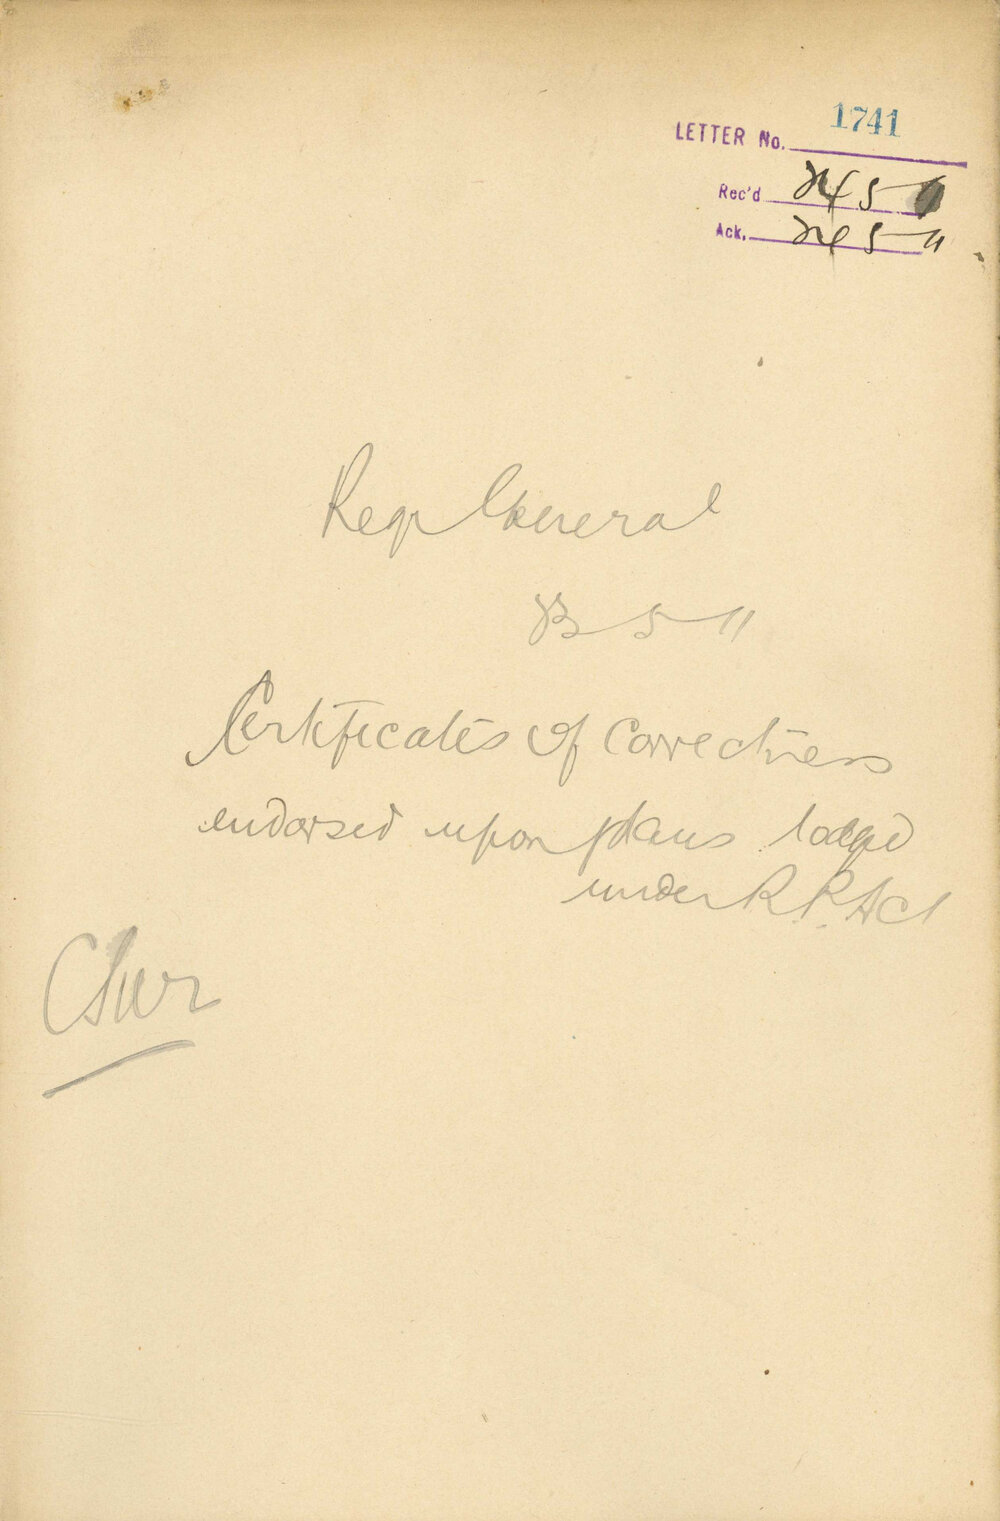 LETTER No. 1741
Rec'd 24 5 11
Ack. 24 5 11
Regr General
23 5 11
Certificates of Correctness
endorsed upon plans lodged
under R.P. Act